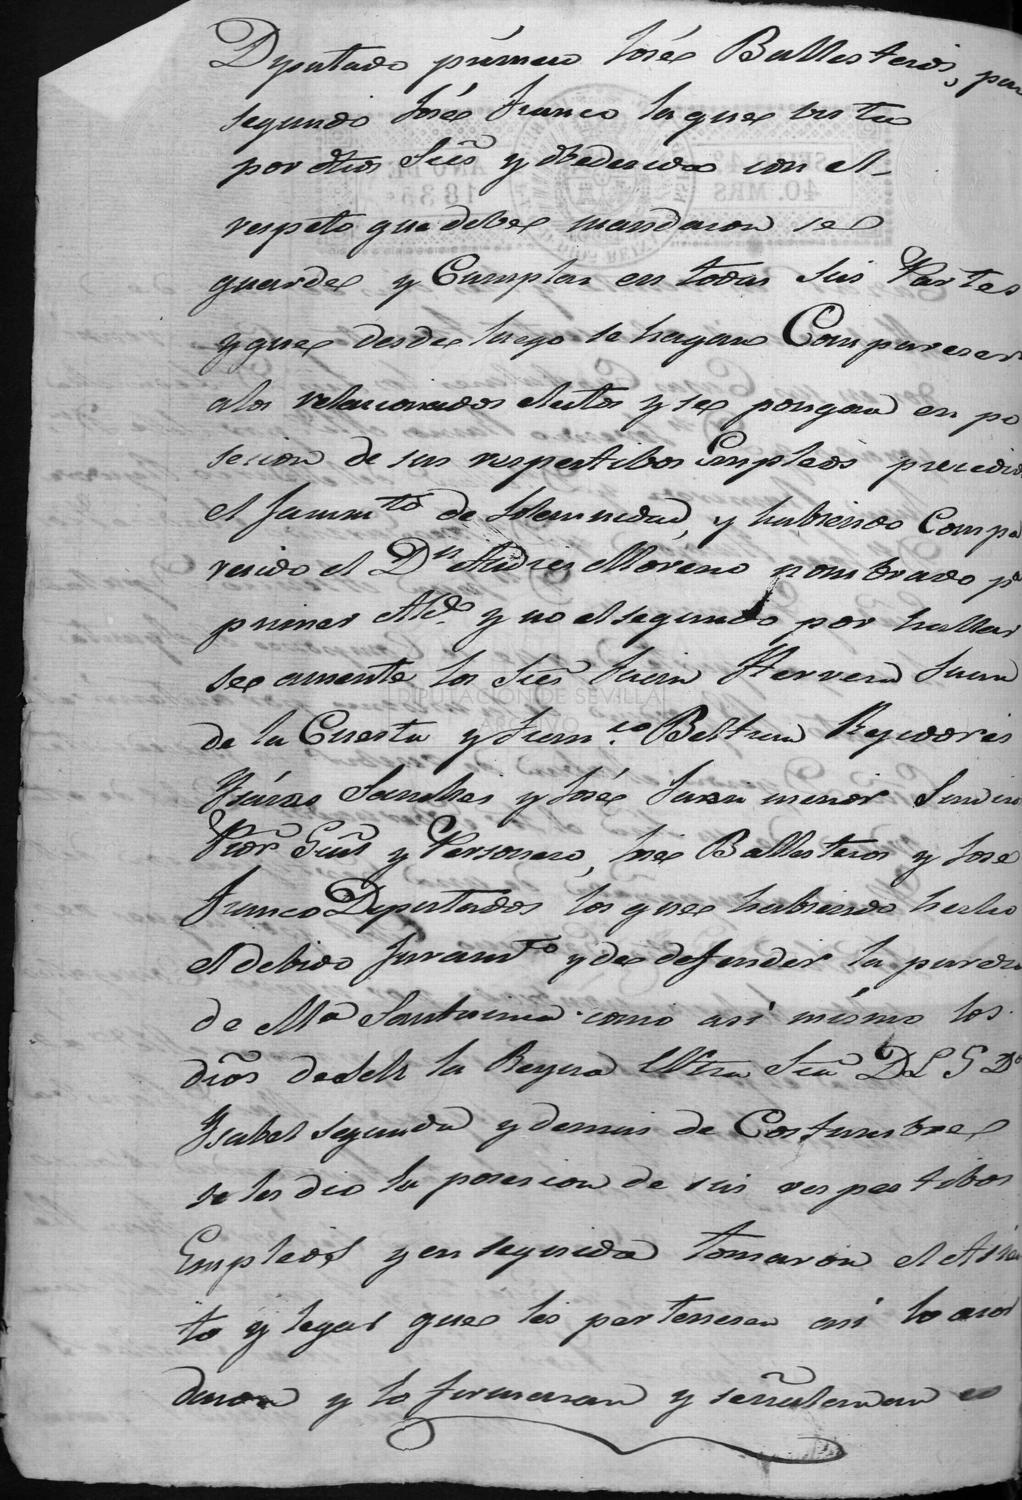 Diputado primero José Ballesteros, para
segundo José Franco la que vista
por dhos Sres y obedecida con el
respeto que debe mandaron se
guarde y Cumpla en todas sus Partes
y que desde luego se hagan Compareser
a los relacionados electos y se pongan en po
sesion de sus respectibos Empleos precedido
el juramto de solemnidad, y habiendo Compa
recido el Dn Andres Moreno nombrado pa
primer Alde y no el segundo por hallar
se ausente los Sres Juan Herrera Juan
de la Cuesta y Franco Beltran Rejidores
Sanches y José menor Sindico
Procr Gral y Personero, José Ballesteros y José
Franco Diputados los que habiendo hecho
el debido Juramto y de defender la pureza
de Ma Santisima como asi mismo los
dros de la Reyna Ntra Sra D
Ysabel segunda y demas de Costumbre
se les dio la posesion de sus respectibos
Empleos y en seguida tomaron el Asien
to y lugar que les pertenese asi lo acor
daron y lo firmaran y señalaran
DIPUTACION DE SEVILLA
ARCHIVO